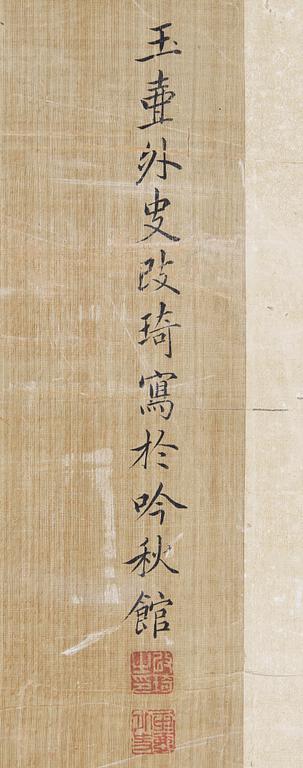 玉壷外史改琦寫於吟秋館